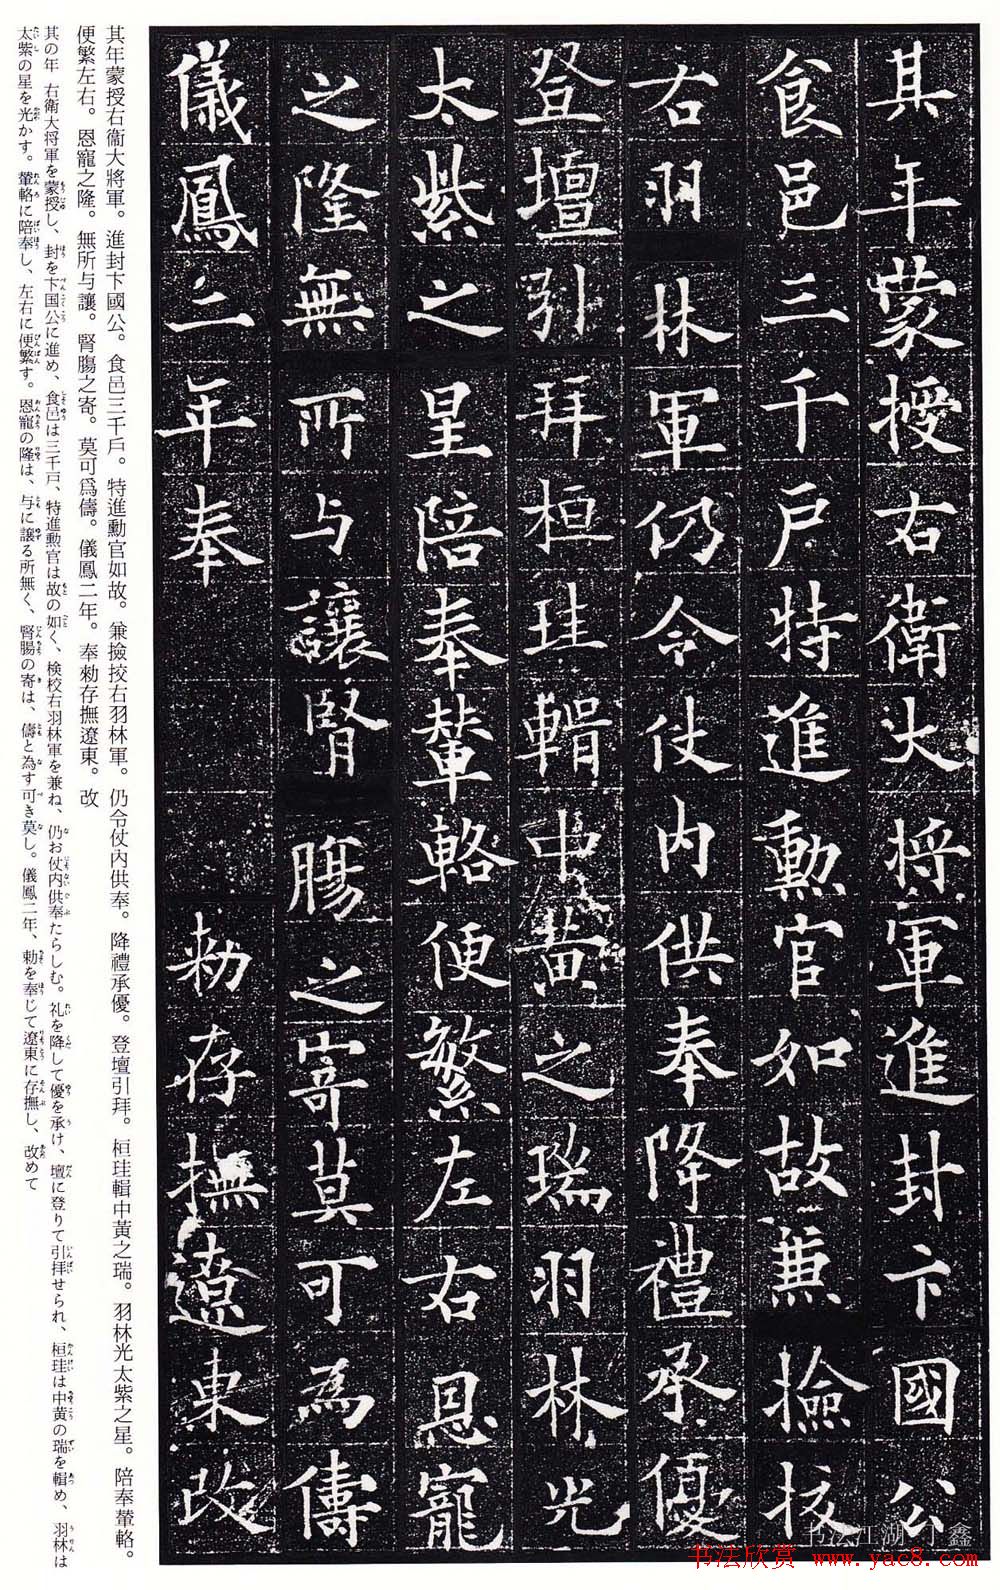 其年蒙授右衛大将軍進封卞國公
食邑三千戶特進勳官如故蕪撿挍
右羽林軍仍令仗内供奉降禮承優
登壇引拜桓珪輯中黄之瑞羽林光
太紫之星陪奉輦輅便繁左右恩寵
之隆無所与讓腎膓之寄莫可為儔
儀鳳二年奉勑存撫遼東改
其年蒙授右衞大將軍。進封卞國公。食邑三千戶。特進勳官如故。兼撿挍右羽林軍。仍令仗內供奉。降禮承優。登壇引拜。桓珪輯中黃之瑞。羽林光太紫之星。陪奉輦輅。
便繁左右。恩寵之隆。無所与讓。腎膓之寄。莫可爲儔。儀鳳二年。奉勑存撫遼東。改
其の年　右衛大将軍を蒙授し、封を卞国公に進め、食邑は三千戸、特進勲官は故の如く、検校右羽林軍を兼ね、仍お仗内供奉たらしむ。礼を降して優を承け、壇に登りて引拝せられ、桓珪は中黄の瑞を輯め、羽林は
太紫の星を光かす。輦輅に陪奉し、左右に便繁す。恩寵の隆は、与に譲る所無く、腎腸の寄は、儔と為す可き莫し。儀鳳二年、勅を奉じて遼東に存撫し、改めて
书法江湖 丁鑫
书法欣赏 www.yac8.com